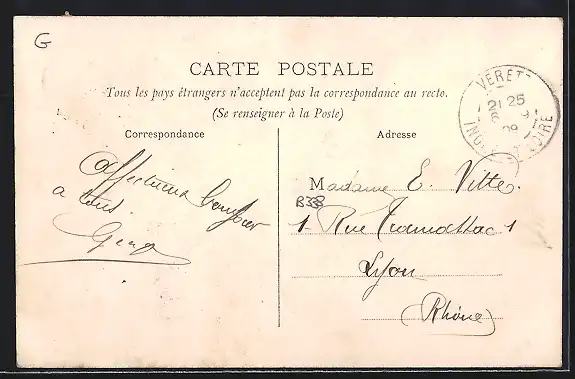 G
CARTE POSTALE
Tous les pays étrangers n'acceptent pas la correspondance au recto.
(Se renseigner à la Poste)
Correspondance
Adresse
VERETZ
21 25
6 9
09
INDRE ET LOIRE
Affectueux
a tous.
Madame E. Vitte.
B38
1 Rue 1
Lyon
(Rhône)